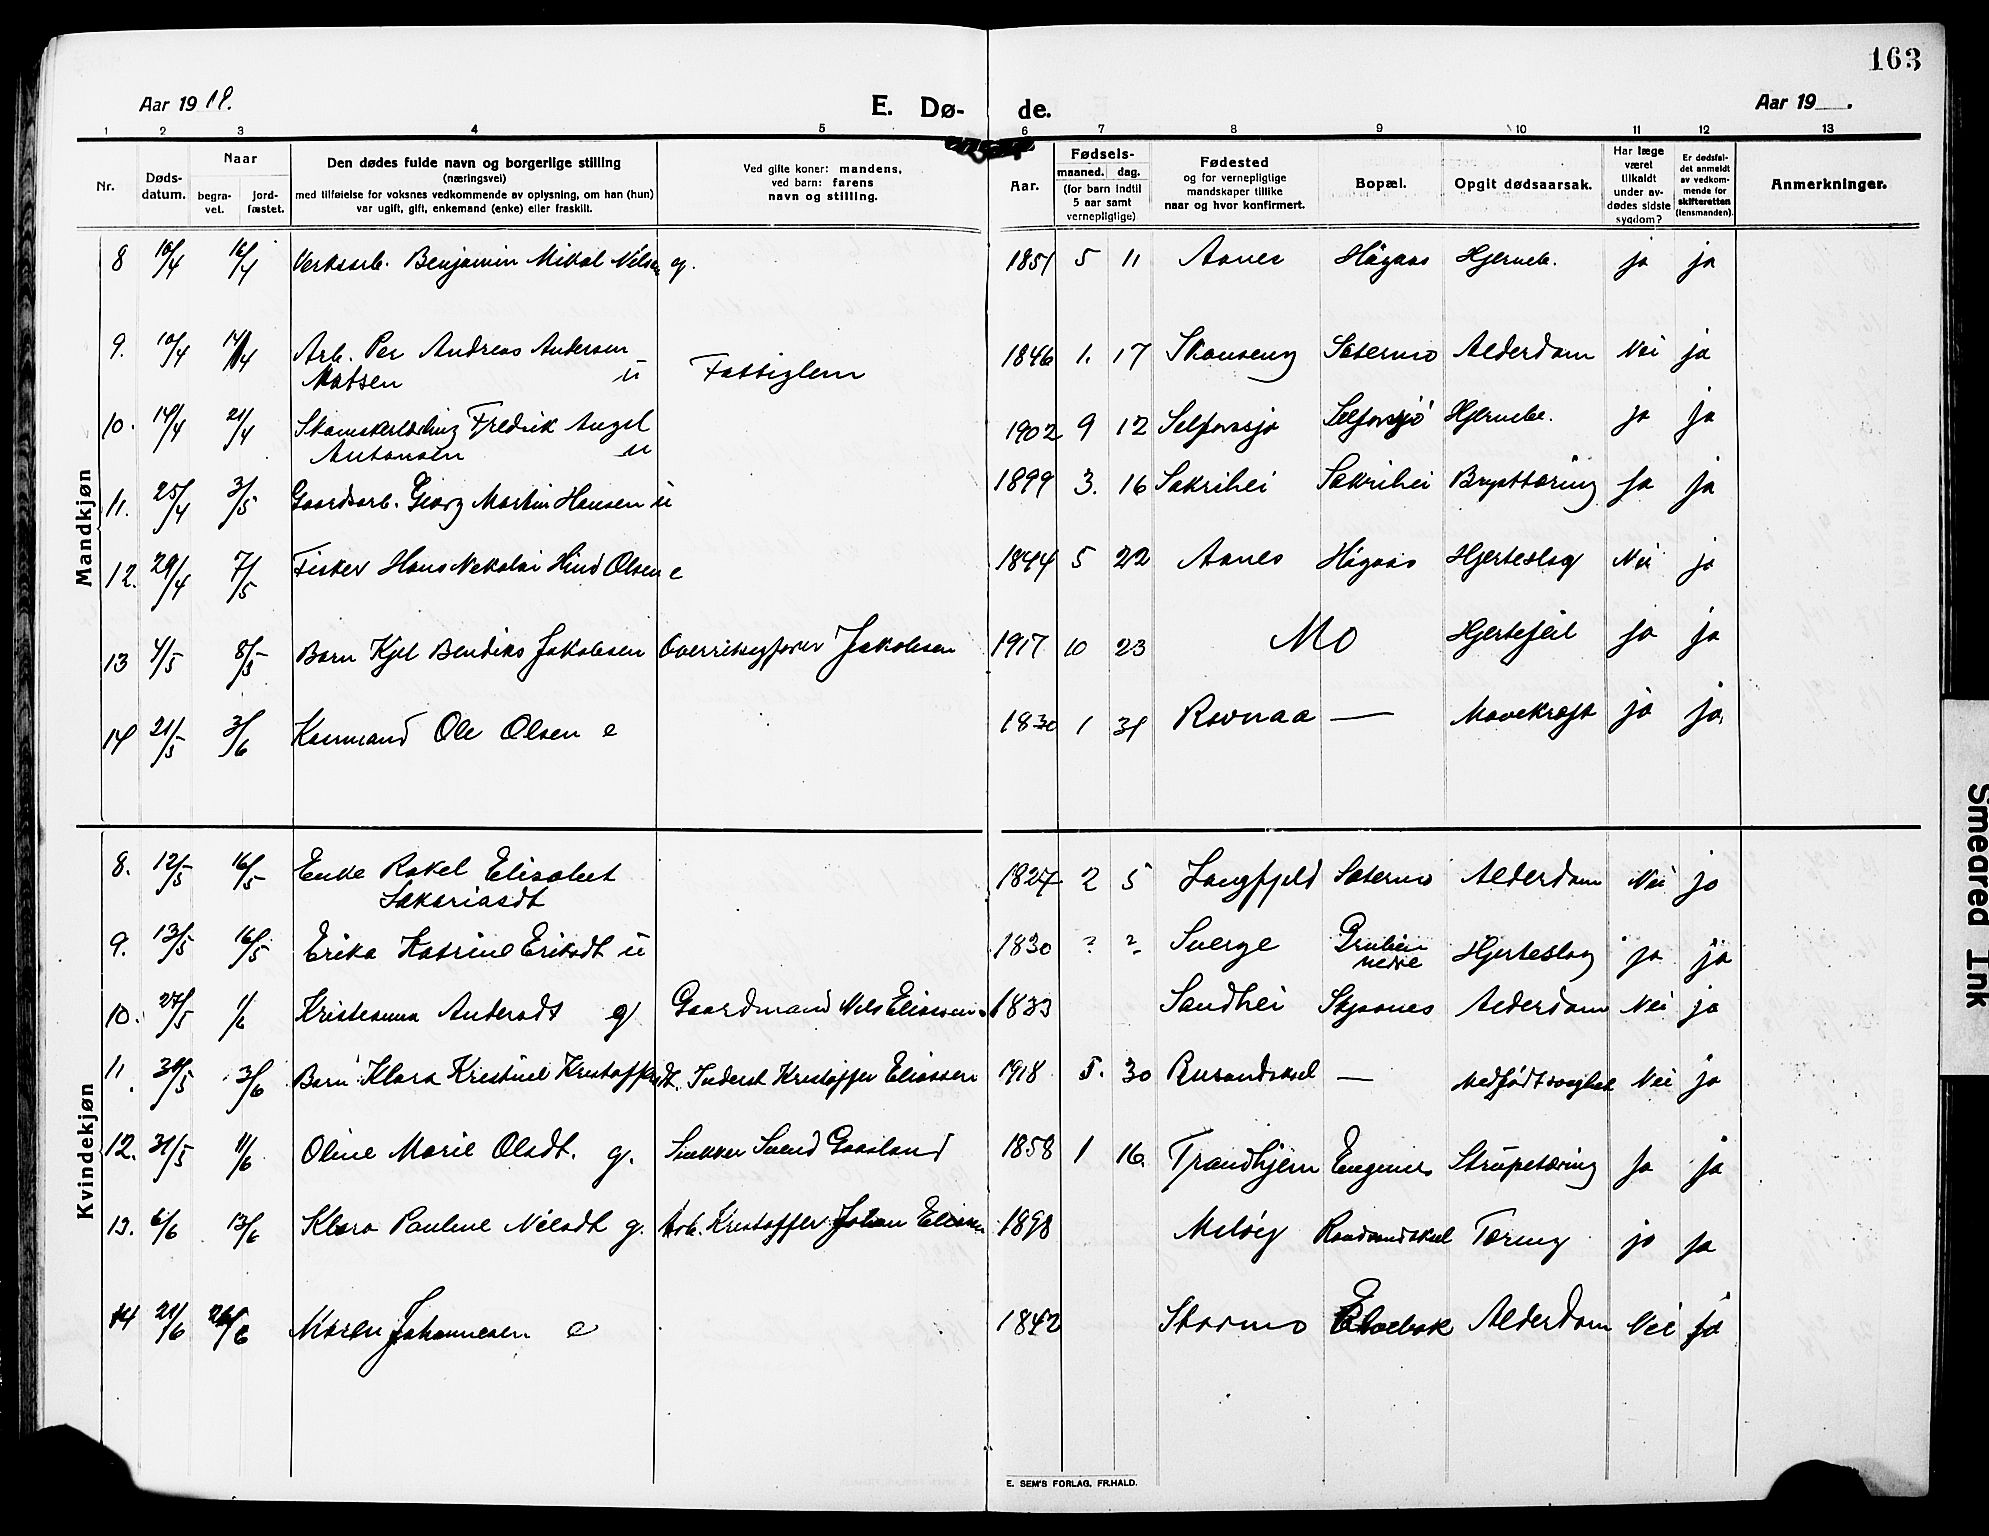 163
Aar 1918.
E. Dø-
de.
Aar 19 .
1 2 3 4 5 6 7 8 9 10 11 12 13
Nr.
Døds-
datum.
Naar
begra-
vet.
jord-
fæstet.
Den dødes fulde navn og borgerlige stilling
(næringsvei)
med tilføielse for voksnes vedkommende av oplysning, om han (hun)
var ugift, gift, enkemand (enke) eller fraskilt.
Ved gifte koner: mandens,
ved barn: farens
navn og stilling.
Aar.
Fødsels-
maaned. dag.
(for barn indtil
5 aar samt
vernepligtige)
Fødested
og for vernepligtige
mandskaper tillike
naar og hvor konfirmert.
Bopæl.
Opgit dødsaarsak.
Har læge
været
tilkaldt
under av-
dødes sidste
sygdom?
Er dødsfal-
det anmeldt
av vedkom-
mende for
skifteretten
(lensmanden).
Anmerkninger.
Mandkjøn
8 10/4 16/4 Verksarb. Benjamin Mikal Nilsen g. 1851 5 11 Aanes Högaas Hjerneb. ja ja
9. 10/4 14/4 Arb. Per Andreas Andersen
Matsen u Fattiglem 1846 1. 17 Skonseng Sætermo Alderdom Nei ja
10. 14/4 21/4 Skomakerlærling Fredrik Angel
Antonsen u 1902 9 12 Selforssjø Selforssjö Hjernebe. ja ja
11. 25/4 3/5 Gaardsarb. Georg Martin Hansen u 1899 3. 16 Sakrihei Sakrihei Brysttæring Ja Ja
12. 29/4 7/5 Fisker Hans Nekolai Hind Olsen e 1844 5 22 Aanes Högaas Hjerteslag Nei ja
13 4/5 8/5 Barn Kjel Bendiks Jakobsen Overretssagfører Jakobsen 1917 10 23 Mo Hjertefeil Ja Ja
14 21/5 3/6 Kaarmand Ole Olsen e 1830 1 31 Ravnaa — Mavekræft ja ja.
Kvindekjøn
8. 12/5 16/5 Enke Rakel Elisabet
Sakariasdt 1827 2 5 Langfjeld Sætermo Alderdom Nei ja
9. 13/5 16/5 Erika Katrine Eriksdt u 1830 ? ? Sverge Gruben
nedre Hjerteslag ja ja
10. 27/5 1/6 Kristianna Andersdt g Gaardmand Nils Eliassen 1833 Sandhei Skjaanes Alderdom Nei ja
11. 30/5 3/6 Barn Klara Kristine Kristoffersdt. Inderst Kristoffer Eliassen 1918 5. 30 — Medfödt svaghet Nei ja
12. 31/5 11/6 Oline Marie Olsdt. g. Snekker Svend Gaasland 1858 1 16. Trondhjem Engenes Strupetæring Ja ja
13. 6/6 13/6 Klara Pauline Nilsdt g. Arb. Kristoffer Johan Eliassen 1898 Tæring ja ja
14 21/6 26/6 Maren Johannesen e 1842 Stormo Elvebak Alderdom Nei ja
E. SEM'S FORLAG, FR.HALD.
Smeared Ink